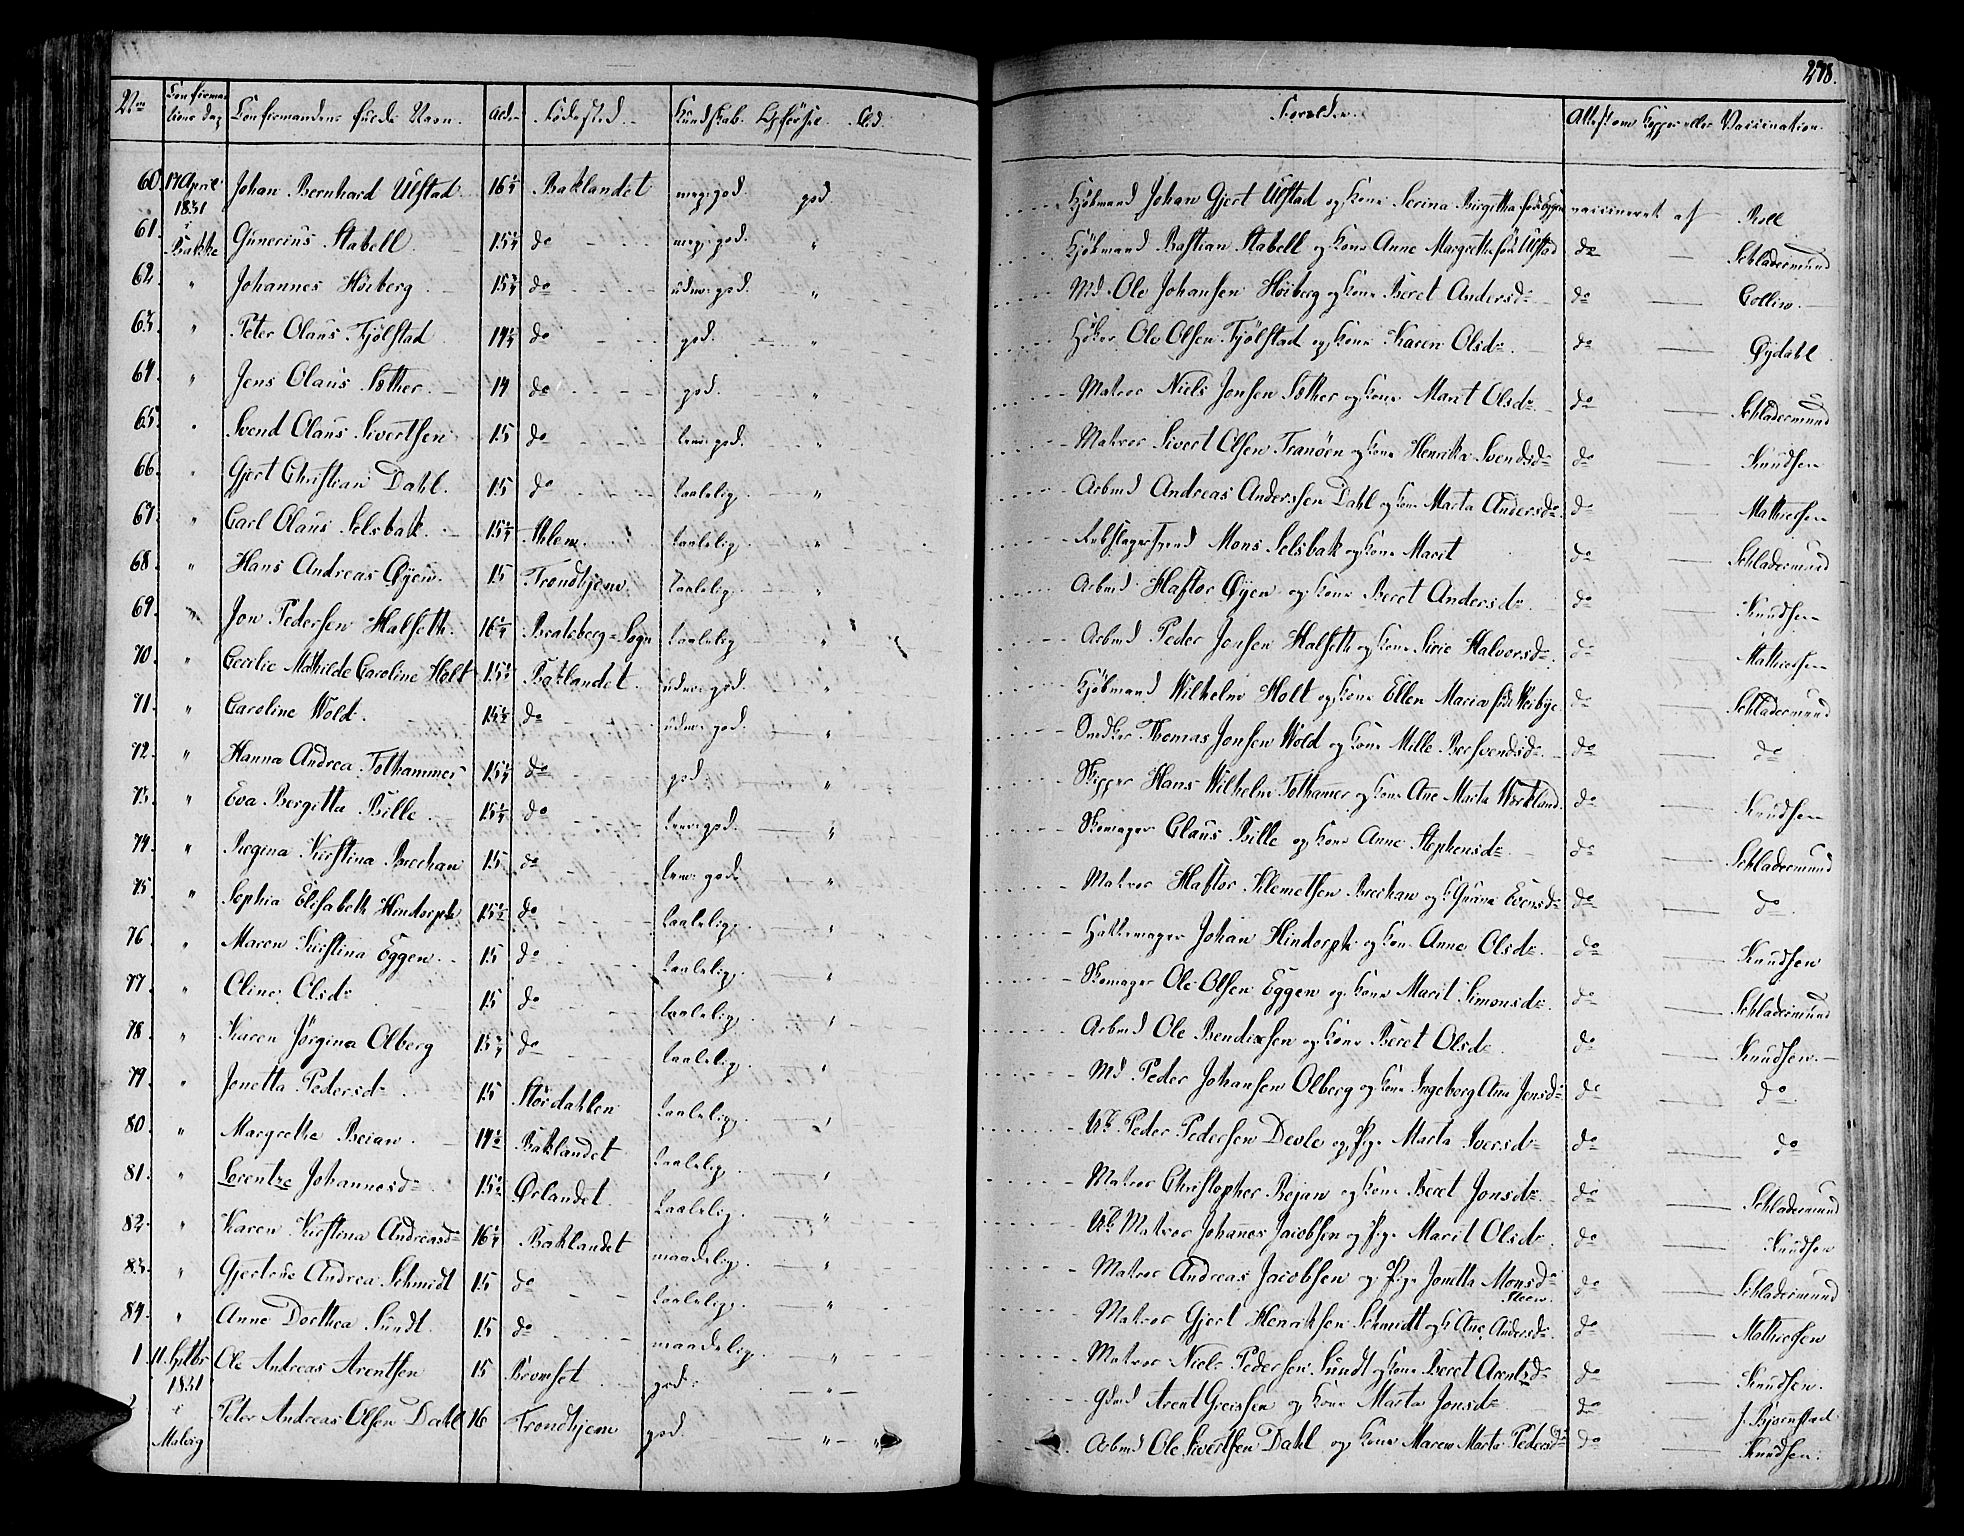 278.
Nro Confirma- Confirmandens fulde Navn. Alder Fødested. Kundskab. Opførsel. Forældre. Attest om Kopper eller Vaccination.
tions Dag
60. 17 April Johan Bernhard Ulstad 16 1/4 Baklandet meg. god. god. Kjöbmand Johan Gjert Ulstad og Kone Serina Birgitha vaccineret af Roll
1831
61. i Gunerius Stabell 15 1/4 do meg. god. " Kjöbmand Bastian Stabell og Kone Anne Margrethe föd Ulstad do — Schladermund
Bakke
62. " Johannes Höiberg 15 do udm. god. " Md Ole Johansen Höiberg og Kone Beret Andersdr do — Collin.
63. " Peter Olaus Fjölstad 14 do god. " Höker Ole Olsen Fjölstad og Kone Karen Olsdr. do — Öydahl
64. " Jens Olaus Söther 14 do god. " Matros Niels Jonsen Söther og Kone Marit Olsdr. do — Schladermund
65. " Svend Olaus Sivertsen 15 do god. " Matros Sivert Olsen Tranöen og Kone Henrikka Svendsdr do — Knudsen
66. " Gjert Christian Dahl. 15 do taalelig. " Arbmd Andreas Anderssen Dahl og Kone Marta Andersdr. do — Mathiesen
67. " Carl Olaus Selsbak 15 1/4 taalelig. " Mons Selsbak og Kone Marit do — Schladermund
68. " Hans Andreas Öyen. 15 Trondhjem. taalelig. " Arbmd Haftor Öyen og Kone Beret Andersdr. do — Knudsen
69. " Jon Pedersen Halseth. 16 1/4 Bratsberg-Sogn taalelig " Arbmd Peder Jonsen Halseth og Kone Siri Halvorsdr. do — Mathiesen
70. " Cecilie Mathilde Caroline Holt 15 Baklandet. udm. god. " Kjöbmand Wilhelm Holt og Kone Ellen Maria föd do — Schladermund
71. " Caroline Wold. 15 do udm. god. " Thomas Jonsen Wold og Kone Mille Bersvendsdr. do — do
72. " Hanna Andrea Tolhammer 15 1/4 do god " Skipper Hans Wilhelm Tolhamer og Kone Ane Marta do — Knudsen
73. " Eva Bergitta Bille 15 1/4 do god. " Skomager Claus Bille og Kone Anne Stephensdr do — Schladermund
74. " Regina Kirstina Brechan 15 do god. " Matros Haftor Klemetsen Brechan og K Evensdr do — do.
75. " Sophia Elisabeth Hindorph 15 1/2 do taalelig. " Hattemager Johan Hindorph og Kone Anne Olsdr. do — Knudsen
76. " Maren Kirstina Eggen. 15 do taalelig. " Skomager Ole Olsen Eggen og Kone Marit Simonsdr. do — Schladermund
77. " Oline Olsdr 15 do taalelig. " Arbmd Ole Bendixsen og Kone Beret Olsdr. do — Knudsen.
78. " Karen Jörgina Olberg 15 do taalelig. " Md Peder Johansen Olberg og Kone Ingeborg Ana Jensdr do — do.
79. " Jonetta Pedersdr 15 Stördahlen taalelig. " Uk Peder Pedersen Devle og Pige Marta Iversdr do — do
80. " Margrethe Beian. 14 1/2 Baklandet taalelig. " Matros Christopher Bejan og Kone Beret Jonsdr. do — Schladermund
81. " Lorentze Johannesdr. 15 Ørlandet taalelig. " Uk Matros Johanes Jacobsen og Pige Marit Olsdr. do — Knudsen
82. " Karen Kirstina Andreasdr 16 1/4 Baklandet maadelig. " Matros Andreas Jacobsen og Pige Jonetta Monsdr do — Schladermund
83. " Gjertrue Andrea Schmidt 15 do taalelig. " Matros Gjert Henriksen Schmidt og K Ane Andersdr. do — Mathiesen
84. " Anne Dorthea Sundt. 15 do maadelig. " Matros Niels Pedersen Sundt og Kone Beret Arentsdr do — Knudsen.
1. 11. Septbr Ole Andreas Arentsen 15 god. " Gdmd Arent Greissen og Kone Marta Jonsdr do — J. Björnstad
1831
2. i Peter Andreas Olsen Dahl 16 Trondhjem god. " Arbmd Ole Sivertsen Dahl og Kone Maren Marta Pedersdr do — Knudsen.
Malvig